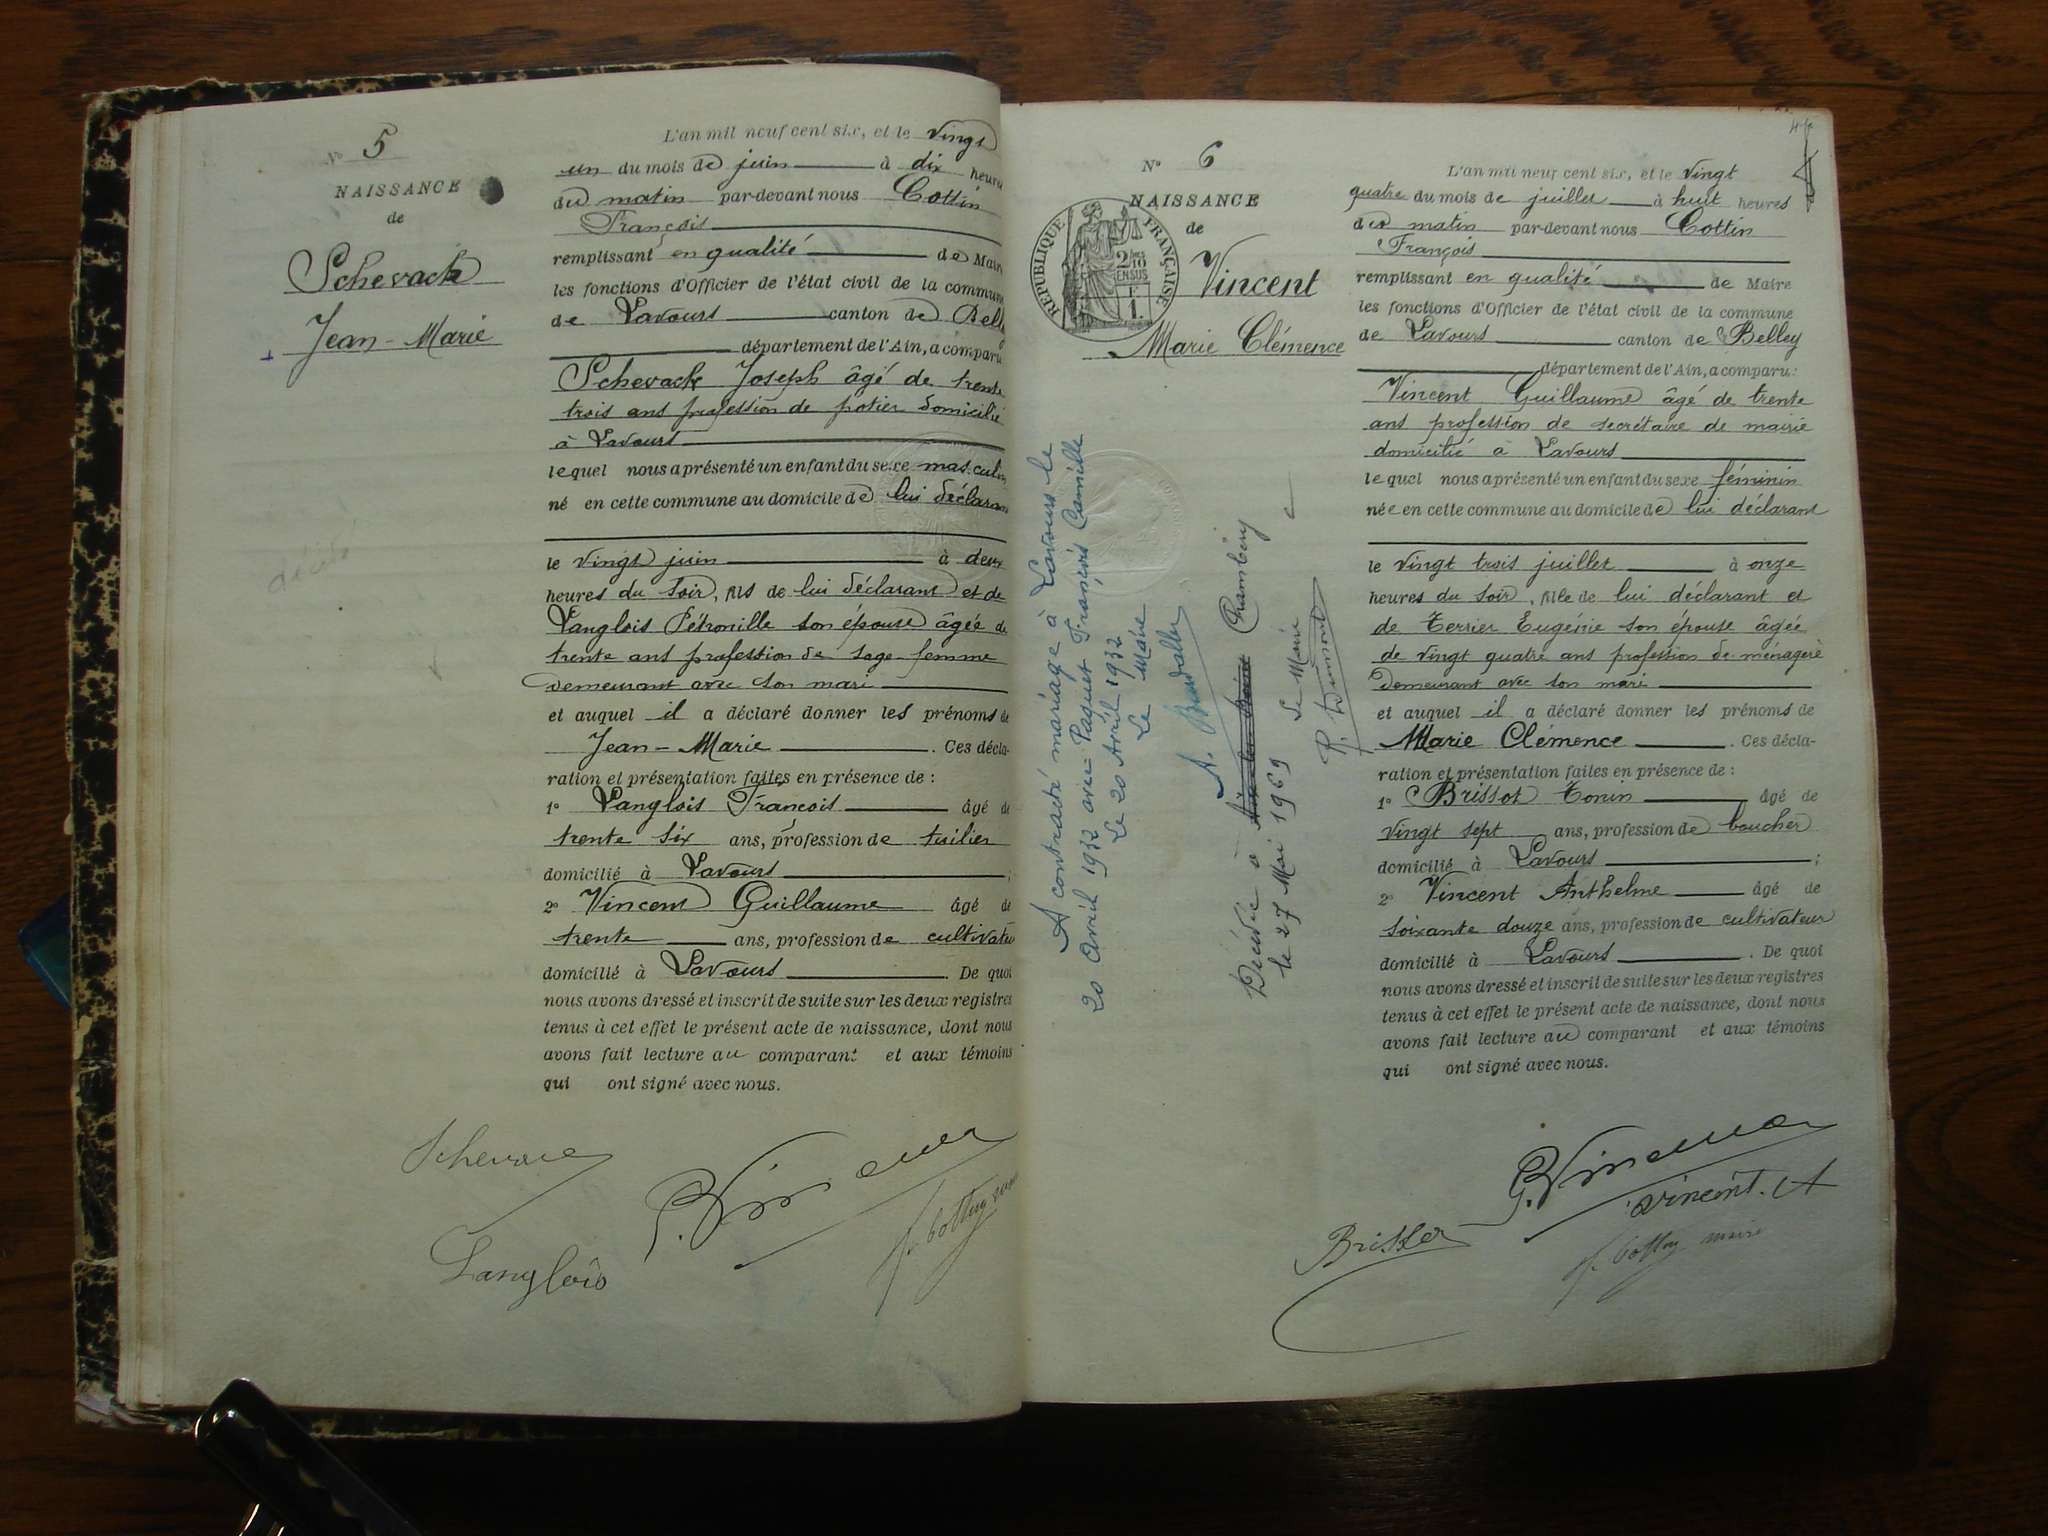 N° 5
NAISSANCE
de
Schevack
Jean-Marie
décédé
L'an mil neuf cent six, et le vingt
un du mois de juin à dix heures
du matin par-devant nous Cottin
François
remplissant en qualité de Maire
les fonctions d'Officier de l'état civil de la commune
de Lavours canton de Belley
département de l'Ain, a comparu
Schevack Joseph âgé de trente
trois ans profession de potier domicilié
à Lavours
lequel nous a présenté un enfant du sexe masculin
né en cette commune au domicile de lui déclarant
le vingt juin à deux
heures du soir, fils de lui déclarant et de
Langlois Pétronille son épouse âgée de
trente ans profession de sage-femme
demeurant avec son mari
et auquel il a déclaré donner les prénoms de
Jean-Marie. Ces décla-
ration et présentation faites en présence de :
1° Langlois François âgé de
trente six ans, profession de tuilier
domicilié à Lavours ;
2° Vincent Guillaume âgé de
trente ans, profession de cultivateur
domicilié à Lavours. De quoi
nous avons dressé et inscrit de suite sur les deux registres
tenus à cet effet le présent acte de naissance, dont nous
avons fait lecture au comparant et aux témoins
qui ont signé avec nous.
Schevack
G. Vincent
f. Cottin maire
Langlois
N° 6
NAISSANCE
de
Vincent
Marie Clémence
RÉPUBLIQUE FRANÇAISE
2/10
EN SUS
1 F.
A contracté mariage à Lavours le
20 Avril 1932 avec Paquet François Camille
Le 20 Avril 1932
Le Maire
Décédée à Chambéry
le 27 Mai 1969
Le Maire
P. Dumont
L'an mil neuf cent six, et le vingt
quatre du mois de juillet à huit heures
du matin par-devant nous Cottin
François
remplissant en qualité de Maire
les fonctions d'Officier de l'état civil de la commune
de Lavours canton de Belley
département de l'Ain, a comparu:
Vincent Guillaume âgé de trente
ans profession de secrétaire de mairie
domicilié à Lavours
lequel nous a présenté un enfant du sexe féminin
née en cette commune au domicile de lui déclarant
le vingt trois juillet à onze
heures du soir, fille de lui déclarant et
de Terrier Eugénie son épouse âgée
de vingt quatre ans profession de ménagère
demeurant avec son mari
et auquel il a déclaré donner les prénoms de
Marie Clémence. Ces décla-
ration et présentation faites en présence de :
1° Brissot Tonin âgé de
vingt sept ans, profession de boucher
domicilié à Lavours ;
2° Vincent Anthelme âgé de
soixante douze ans, profession de cultivateur
domicilié à Lavours. De quoi
nous avons dressé et inscrit de suite sur les deux registres
tenus à cet effet le présent acte de naissance, dont nous
avons fait lecture au comparant et aux témoins
qui ont signé avec nous.
G. Vincent
Vincent. A
f. Cottin maire